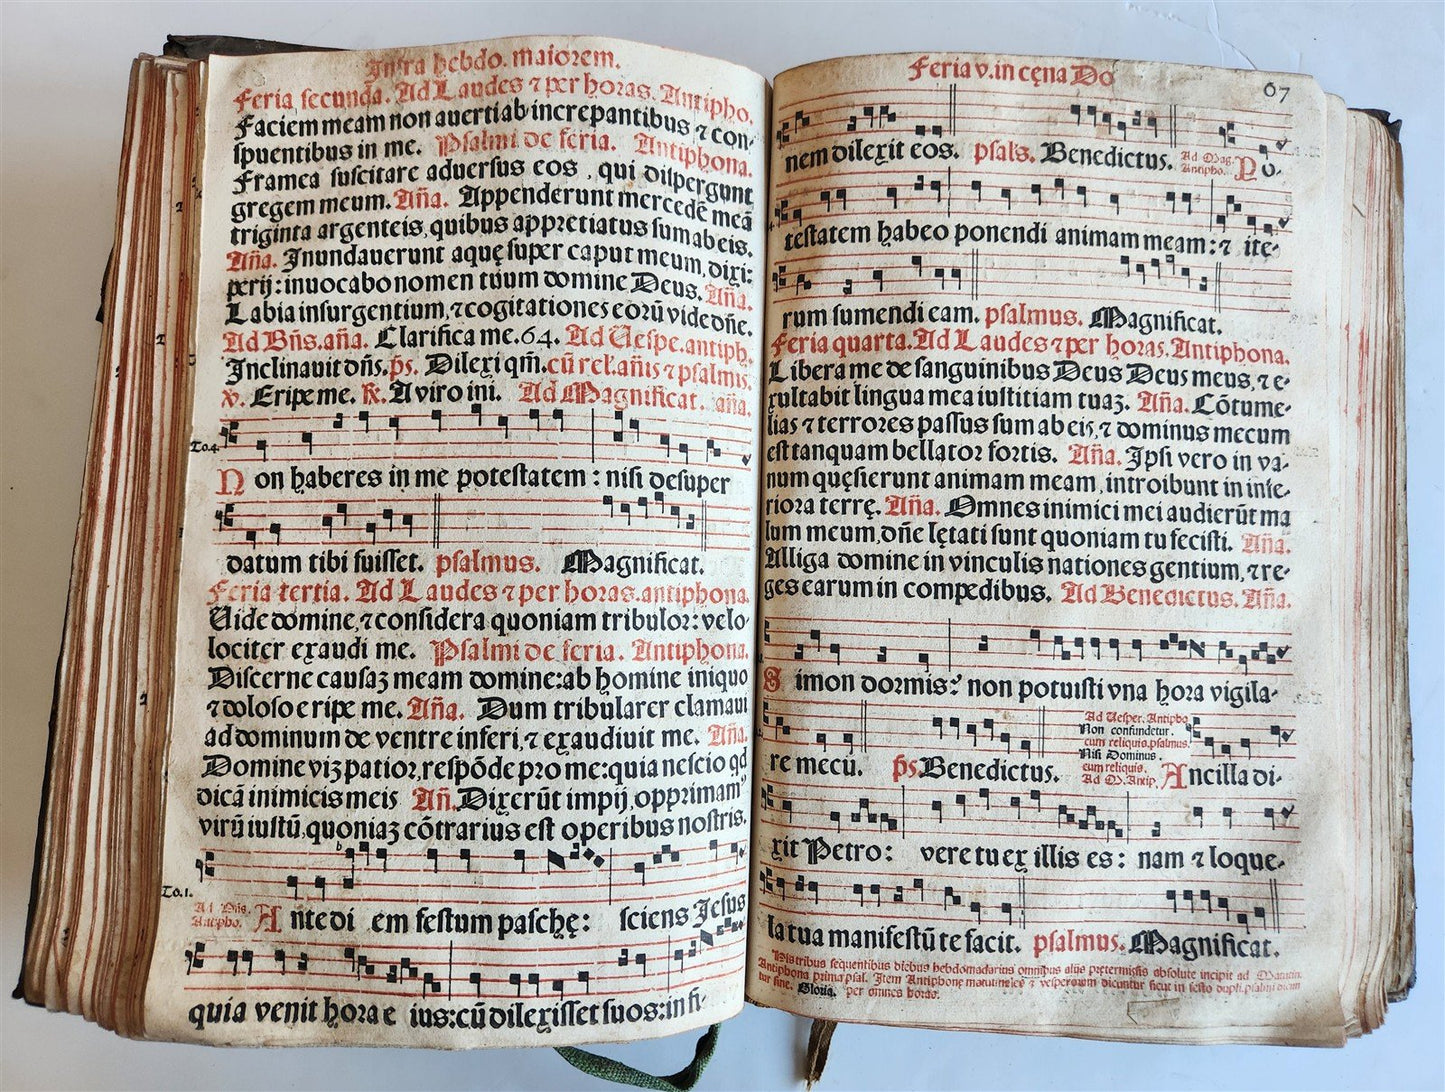 Infra hebdo. maiorem.
Feria secunda. Ad Laudes ⁊ per horas. Antipho.
Faciem meam non auertiab increpantibus ⁊ con-
spuentibus in me. Psalmi de feria. Antiphona.
Framea suscitare aduersus eos , qui dispergunt
gregem meum. Aña. Appenderunt mercedẽ meã
triginta argenteis, quibus appretiatus sum ab eis.
Aña. Inundauerunt aquę super caput meum, dixi:
perij: inuocabo nomen tuum domine Deus. Aña.
Labia insurgentium, ⁊ cogitationes eorũ vide dñe.
Ad Bñs. aña. Clarifica me. 64. Ad Uespe. antiph.
Inclinauit dñs. p̃s. Dilexi qm̃. cũ rel. añis ⁊ psalmis.
℣. Eripe me. ℟. A viro ini. Ad Magnificat. aña.
To.4.
Non haberes in me potestatem : nisi desuper
datum tibi fuisset. psalmus. Magnificat.
Feria tertia. Ad Laudes ⁊ per horas. antiphona.
Uide domine, ⁊ considera quoniam tribulor: velo-
lociter exaudi me. Psalmi de feria. Antiphona.
Discerne causaꝫ meam domine: ab homine iniquo
⁊ doloso eripe me. Aña. Dum tribularer clamaui
ad dominum de ventre inferi, ⁊ exaudiuit me. Aña.
Domine viꝫ patior, respõde pro me: quia nescio qd
dicã inimicis meis Añ. Dixerũt impij, opprimam⁹
virũ iustũ, quoniaꝫ cõtrarius est operibus nostris.
b
To.1.
Ad Bñs.
Antipho.
Ante di em festum paschę: sciens Jesus
quia venit hora e ius: cũ dilexisset suos: in fi-
Feria v. in cęna Do
67
nem dilexit eos. psal's. Benedictus. Ad Mag. Antipho. Po-
testatem habeo ponendi animam meam: ⁊ ite-
rum sumendi eam. psalmus. Magnificat.
Feria quarta. Ad Laudes ⁊ per horas. Antiphona.
Libera me de sanguinibus Deus Deus meus, ⁊ e-
xultabit lingua mea iustitiam tuaꝫ. Aña. Cõtume-
lias ⁊ terrores passus sum ab eis, ⁊ dominus mecum
est tanquam bellator fortis. Aña. Ipsi vero in va-
num quęsierunt animam meam, introibunt in infe-
riora terrę. Aña. Omnes inimici mei audierũt ma
lum meum, dñe lętati sunt quoniam tu fecisti. Aña.
Alliga domine in vinculis nationes gentium, ⁊ re-
ges earum in compedibus. Ad Benedictus. Aña.
Simon dormis? non potuisti vna hora vigila-
re mecũ. p̃s. Benedictus.
Ad Uesper. Antipho
Non confundetur.
cum reliquis. psalmus.
Nisi Dominus.
cum reliquis.
Ad M. Antip.
Ancilla di-
xit Petro: vere tu ex illis es: nam ⁊ loque-
la tua manifestũ te facit. psalmus. Magnificat.
His tribus sequentibus diebus hebdomadarius omnibus alijs prętermissis absolute incipit ad Matutin.
Antiphona prima psal. Item Antiphonę matutinales ⁊ vesperarum dicuntur sicut in festo dupli. psalmi dicun
tur sine. Gloria. per omnes horas.